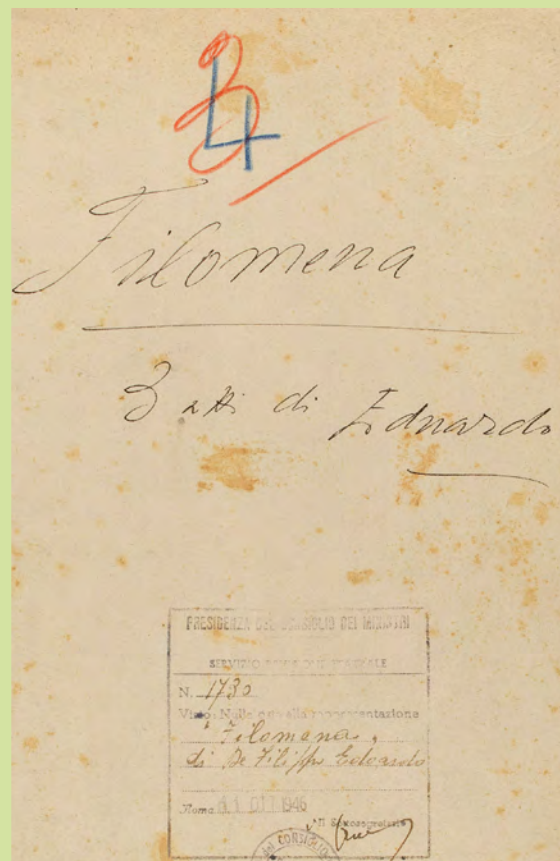 3
4
Filomena
3 atti di Eduardo
PRESIDENZA DEL CONSIGLIO DEI MINISTRI
SERVIZIO
N. 1730
Visto: Nulla osta alla rappresentazione
"Filomana"
di De Filippo Edoardo
Roma 1946
Il Sottosegretario
CONSIGLIO